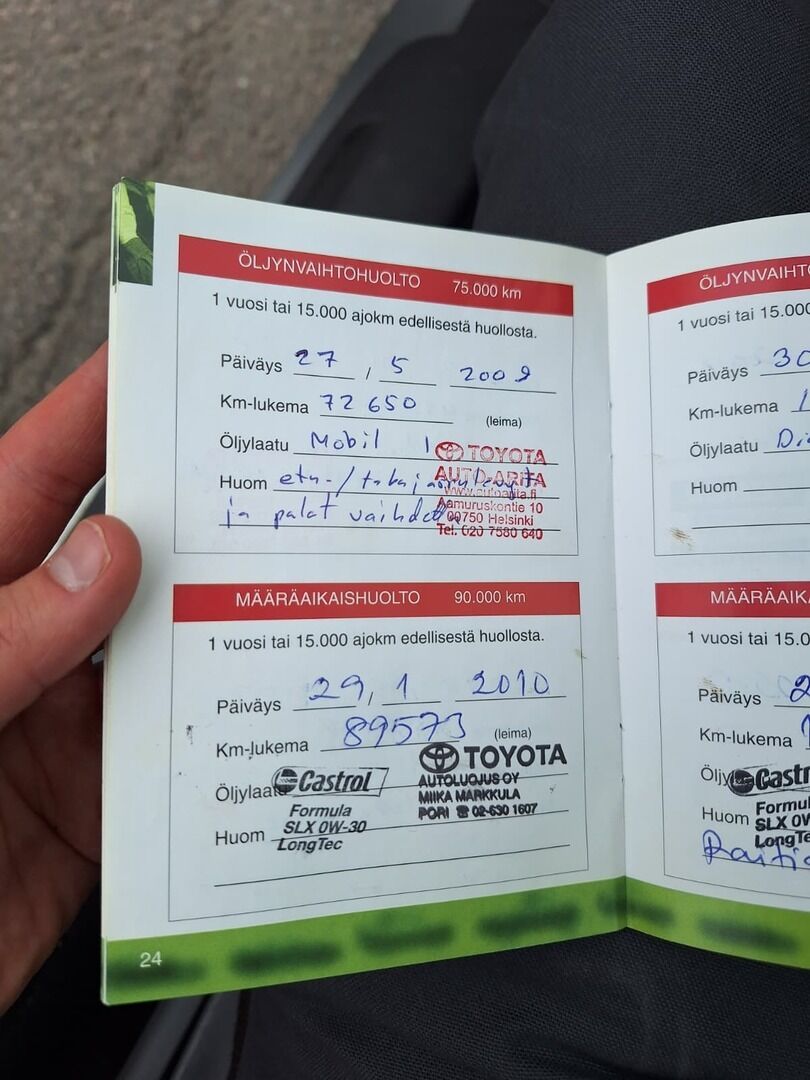 ÖLJYNVAIHTOHUOLTO 75.000 km
1 vuosi tai 15.000 ajokm edellisestä huollosta.
Päiväys 27 / 5 2009
Km-lukema 72 650
(leima)
Öljylaatu Mobil 1
Huom etu-/takajarrulevyt
ja palat vaihdettu
TOYOTA
AUTO-ARITA
www.autoarita.fi
Aamuruskontie 10
00750 Helsinki
Tel. 020 7580 640
MÄÄRÄAIKAISHUOLTO 90.000 km
1 vuosi tai 15.000 ajokm edellisestä huollosta.
Päiväys 29, 1 2010
Km-lukema 89573
(leima)
Öljylaatu Castrol
Huom Formula
SLX 0W-30
LongTec
TOYOTA
AUTOLUOJUS OY
MIIKA MARKKULA
PORI ☎ 02-630 1607
24
ÖLJYNVAIHTO
1 vuosi tai 15.000
Päiväys 30
Km-lukema 1
Öljylaatu Di
Huom
MÄÄRÄAIKA
1 vuosi tai 15.0
Päiväys 2
Km-lukema 1
Öljy Castr
Huom Formul
SLX 0W
LongTe